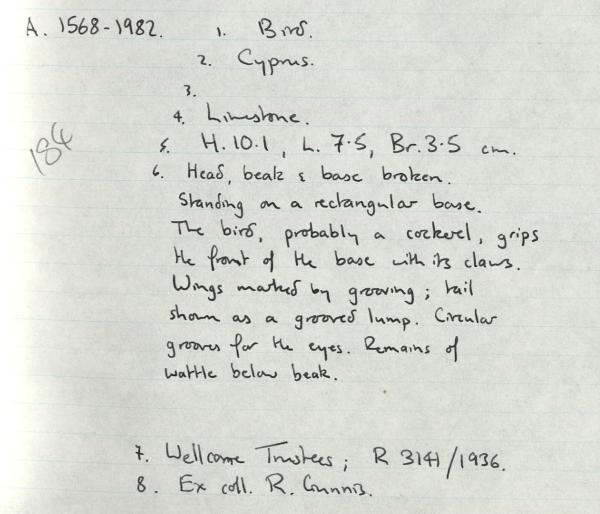 A. 1568-1982. 1. Bird.
2. Cyprus.
3.
4. Limestone.
184
5. H. 10.1, L. 7.5, Br. 3.5 cm.
6. Head, beak & base broken.
Standing on a rectangular base.
The bird, probably a cockerel, grips
the front of the base with its claws.
Wings marked by grooving; tail
shown as a grooved lump. Circular
grooves for the eyes. Remains of
wattle below beak.
7. Wellcome Trustees; R 3141/1936.
8. Ex coll. R. Gunnis.